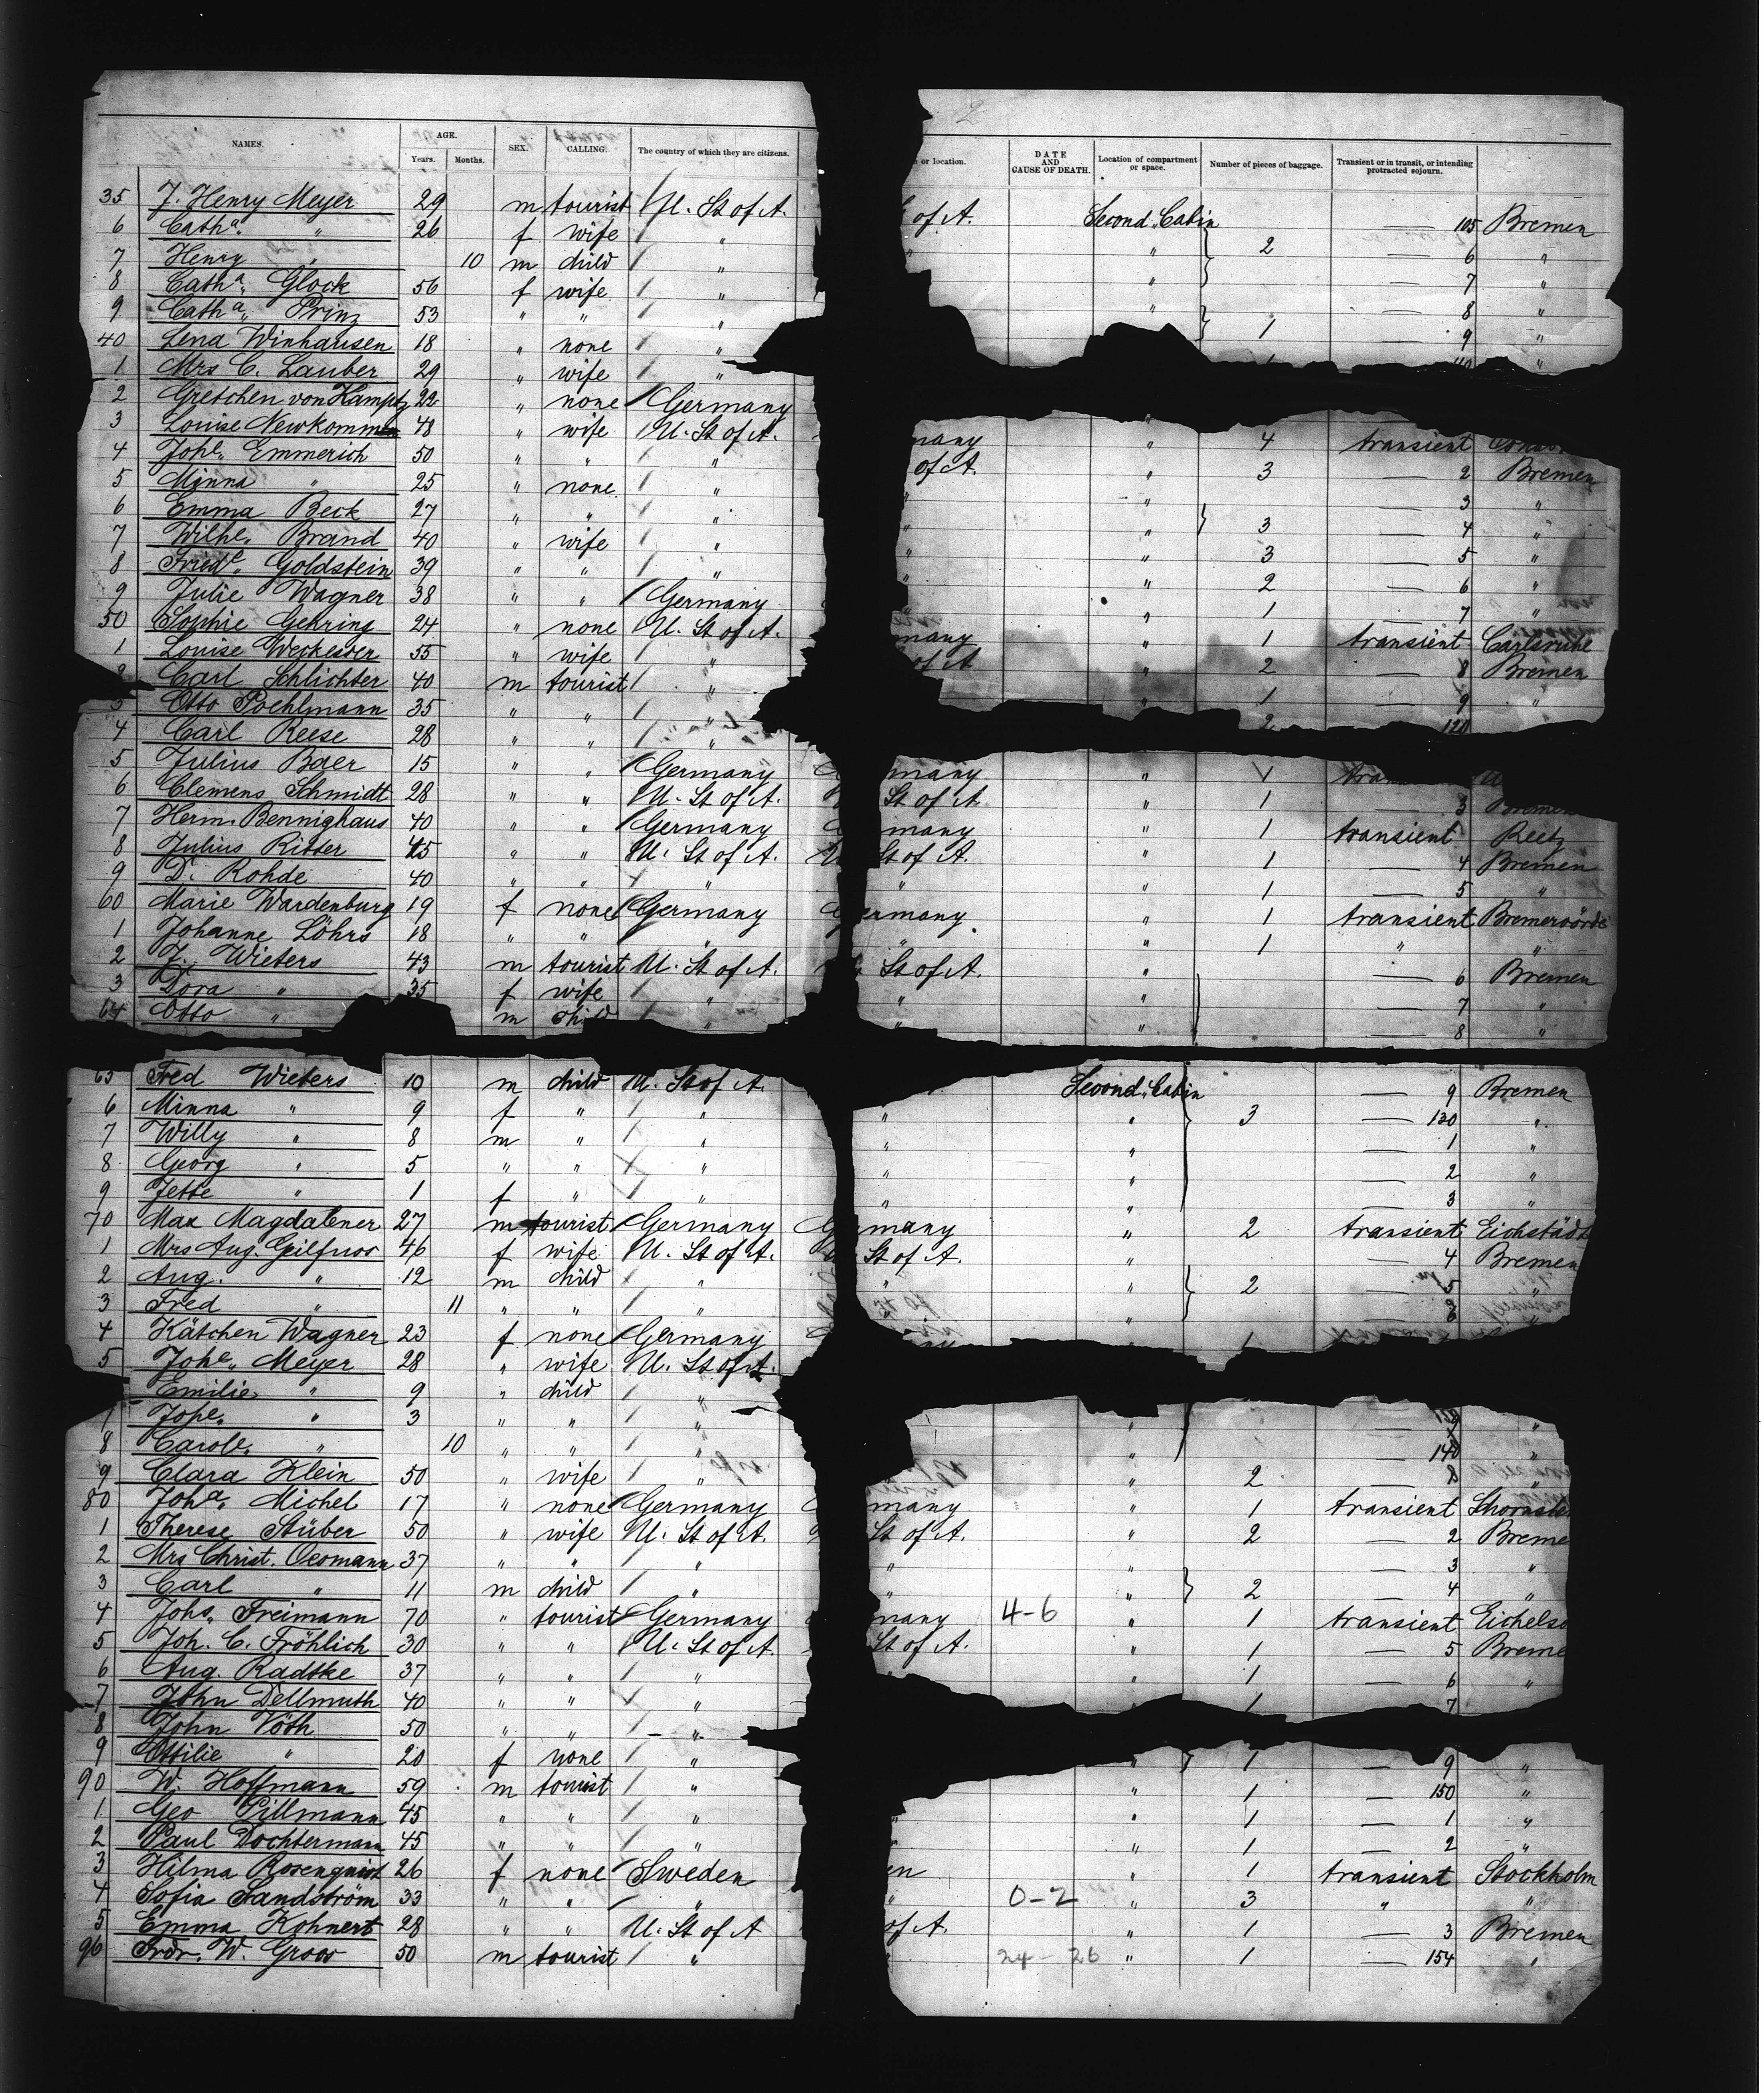 2
NAMES. AGE. Years. Months. SEX. CALLING. The country of which they are citizens. or location. DATE AND CAUSE OF DEATH. Location of compartment or space. Number of pieces of baggage. Transient or in transit, or intending protracted sojourn.
35 J. Henry Meyer 29 m tourist U. St of A. of A. Second Cabin — 105 Bremen
6 Cath.a " 26 f wife " " " 2 — 6 "
7 Henry " 10 m child " " — 7 "
8 Cath.a Glock 56 f wife " " — 8 "
9 Cath.a Prinz 53 " " " 1 — 9 "
40 Lena Winhausen 18 " none " "
1 Mrs C. Lauber 29 " wife "
2 Gretchen von Kamptz 22 " none Germany many " 4 transient
3 Louise Newkommen 48 " wife U. St of A. of A. " 3 — 2 Bremen
4 Joh.e Emmerich 50 " " " " " — 3 "
5 Minna " 25 " none " " " 3 — 4 "
6 Emma Beck 27 " " " " " 3 — 5 "
7 Wilh.e Brand 40 " wife " " " 2 — 6 "
8 Fried.e Goldstein 39 " " " " " 1 — 7 "
9 Julie Wagner 38 " " Germany many " 1 transient Carlsruhe
50 Sophie Gehring 24 " none U. St of A. of A " 2 — 8 Bremen
1 Louise Weckesser 55 " wife " " 1 — 9 "
Carl Schlichter 40 m tourist " 2 — 120
3 Otto Poehlmann 35 " " "
4 Carl Reese 28 " " "
5 Julius Baer 15 " " Germany many " 1
6 Clemens Schmidt 28 " " U. St of A. St of A " 1 — 3 Bremen
7 Herm. Bennighaus 40 " " Germany many " 1 transient Reetz
8 Julius Ritter 45 " " U. St of A. St of A. " 1 — 4 Bremen
9 D. Rohde 40 " " " " " 1 — 5 "
60 Marie Wardenburg 19 f none Germany Germany " 1 transient Bremervörde
1 Johanne Löhrs 18 " " " " " 1 " "
2 J. Wieters 43 m tourist U. St of A. St of A. " — 6 Bremen
3 Dora " 35 f wife " " " — 7 "
64 Otto " m child " " " — 8 "
65 Fred Wieters 10 m child U. St of A. Second Cabin — 9 Bremen
6 Minna " 9 f " " " " 3 — 130 "
7 Willy " 8 m " " " " — 1 "
8 Georg " 5 " " " " " — 2 "
9 Jette " 1 f " " " " — 3 "
70 Max Magdalener 27 m tourist Germany Germany " 2 transient Eichstädt
1 Mrs Aug. Gilfuss 46 f wife U. St of A. St of A. " — 4 Bremen
2 Aug. " 12 m child " " " 2 — 5 "
3 Fred " 11 " " " "
4 Kätchen Wagner 23 f none Germany 1
5 Joh.e Meyer 28 " wife U. St of A.
Emilie " 9 " child "
Joh.e " 3 " " " " "
8 Carol.e " 10 " " " " — 140 "
9 Clara Klein 50 " wife " " 2 "
80 Joh.a Michel 17 " none Germany many " 1 transient
1 Therese Stüber 50 " wife U. St of A. St of A. " 2 — 2 Breme
2 Mrs Christ. Oesmann 37 " " " " " — 3 "
3 Carl " 11 m child " " " 2 — 4 "
4 Johs. Freimann 70 " tourist Germany many 4-6 " 1 transient Eichels
5 Joh. C. Fröhlich 30 " " U. St of A. St of A. " 1 — 5 Breme
6 Aug. Radtke 37 " " " " " 1 — 6 "
7 John Dellmuth 40 " " " " 1 — 7
8 John Vöth 50 " " "
9 Ottilie " 20 f none " " 1 — 9 "
90 W. Hoffmann 59 m tourist " " 1 — 150 "
1 Geo Pillmann 45 " " " " " 1 — 1 "
2 Paul Dochtermann 45 " " " " " 1 — 2 "
3 Hilma Rosenquist 26 f none Sweden en " 1 transient Stockholm
4 Sofia Sandström 33 " " " " 0-2 " 3 " "
5 Emma Kohnert 28 " " U. St of A of A. " 1 — 3 Bremen
96 Frdr. W. Gross 50 m tourist " 24-26 " 1 — 154 "